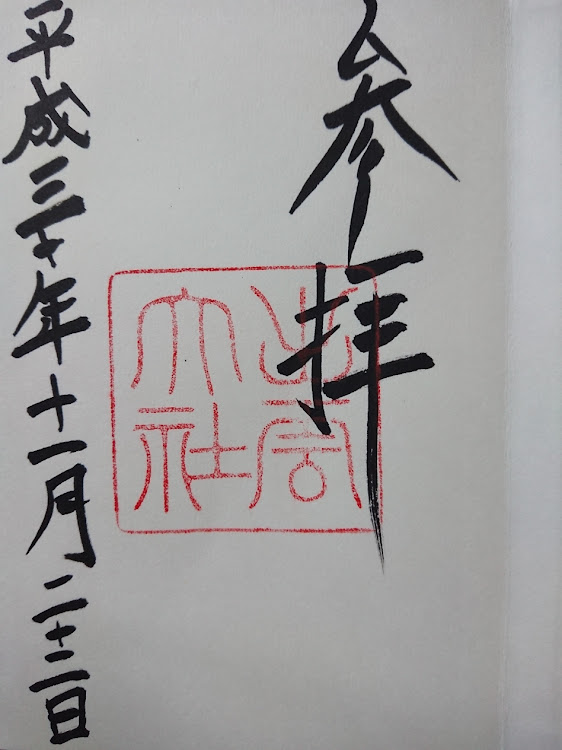 参拝
出雲
大社
平成三十年十一月二十二日